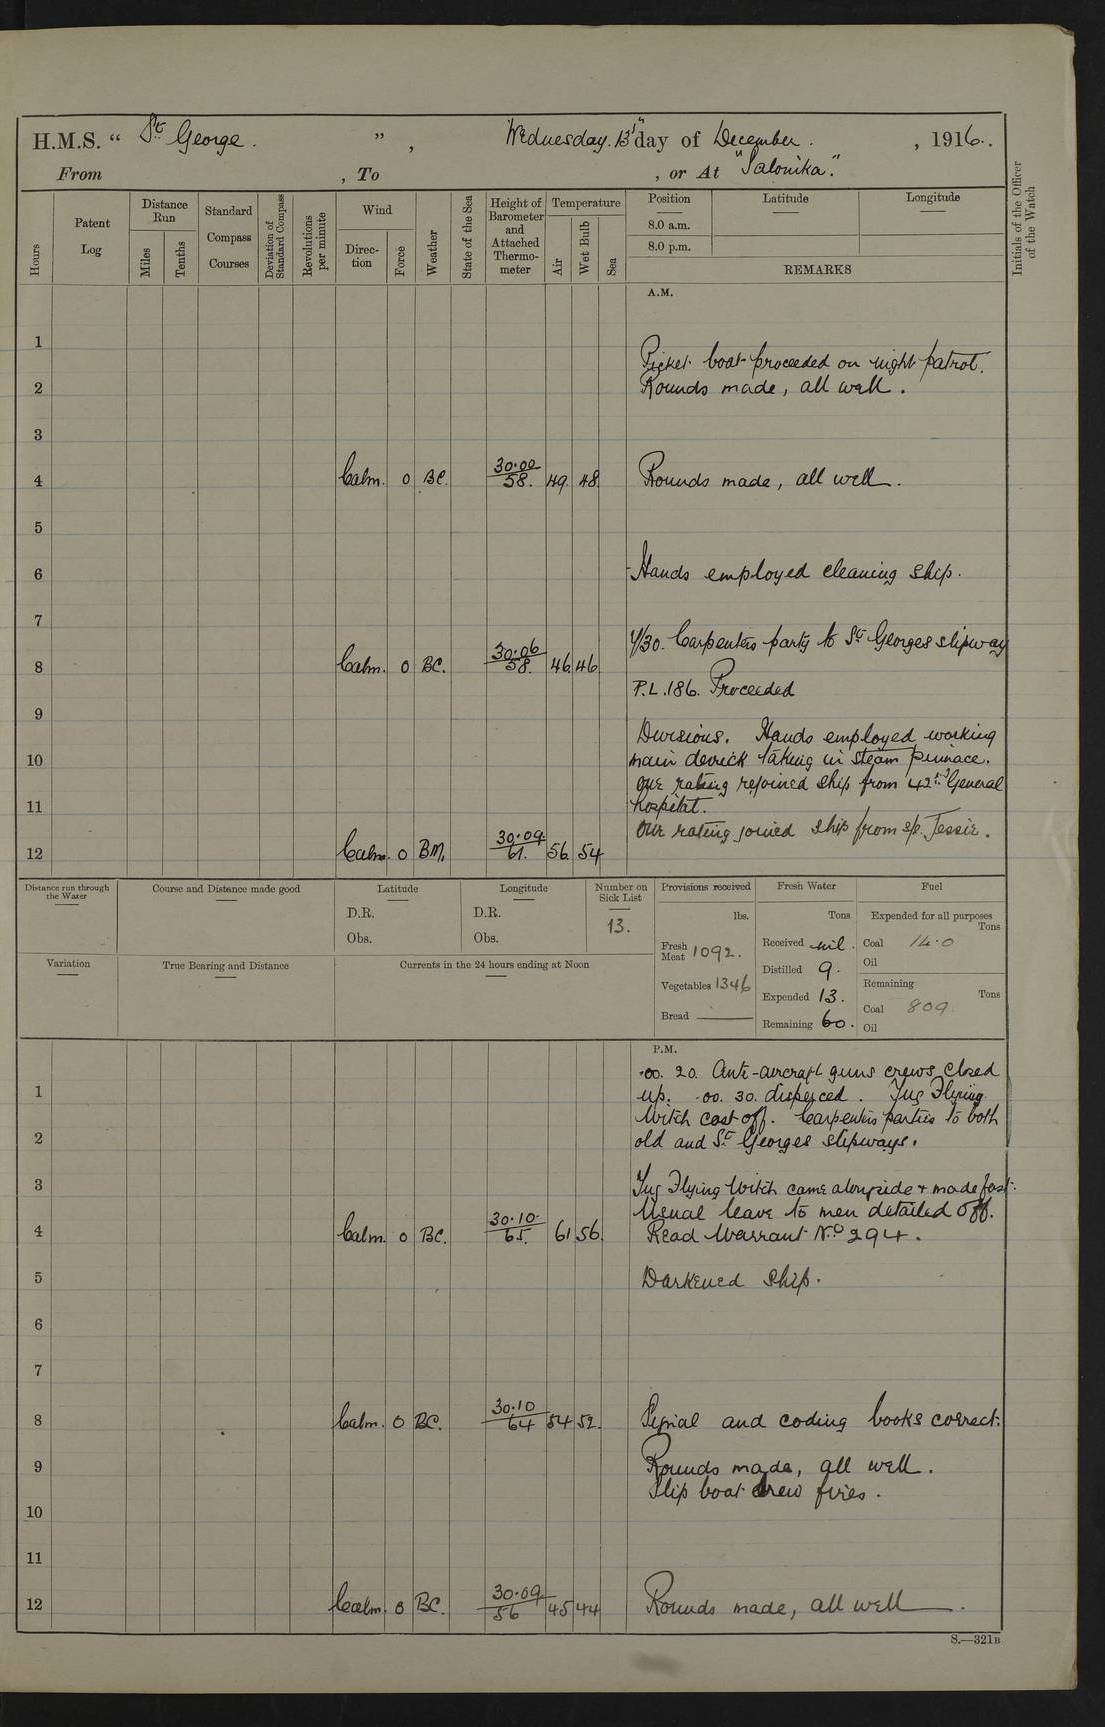 H.M.S. " St George. ", Wednesday. 13th day of December. , 1916..
From , To , or At "Salonika."
Hours
Patent Log
Distance Run
Miles
Tenths
Standard Compass Courses
Deviation of Standard Compass
Revolutions per minute
Wind
Direction
Force
Weather
State of the Sea
Height of Barometer and Attached Thermometer
Temperature
Air
Wet Bulb
Sea
Position
Latitude
Longitude
8.0 a.m.
8.0 p.m.
REMARKS
Initials of the Officer of the Watch
A.M.
1
Picket boat proceeded on night patrol.
2 Rounds made, all well.
3
4 Calm. 0 BC. 30.00/58. 49. 48. Rounds made, all well.
5
6 Hands employed cleaning ship.
7
7/30. Carpenters party to St Georges slipway
8 Calm. 0 BC. 30.06/58. 46. 46.
P.L.186. Proceeded
9
Divisions. Hands employed working
10 main derrick taking in steam pinnace.
One rating rejoined ship from 42nd General
11 hospital.
One rating joined ship from s/p. Jessie.
12 Calm. 0 BM. 30.09./61. 56. 54
Distance run through the Water
Course and Distance made good
Latitude
D.R.
Obs.
Longitude
D.R.
Obs.
Number on Sick List
13.
Provisions received
lbs.
Fresh Meat 1092.
Vegetables 1346
Bread ———
Fresh Water
Tons
Received nil.
Distilled 9.
Expended 13.
Remaining 60.
Fuel
Expended for all purposes
Tons
Coal 14.0
Oil
Remaining
Tons
Coal 809.
Oil
Variation
True Bearing and Distance
Currents in the 24 hours ending at Noon
P.M.
.00. 20. Anti-aircraft guns crews closed
1 up. .00. 30. dispersed. Tug Flying
Witch cast off. Carpenters parties to both
2 old and St Georges slipways.
3 Tug Flying Witch came alongside + made fast.
Usual leave to men detailed off.
4 Calm. 0 BC. 30.10./65. 61 56. Read Warrant No 294.
5 Darkened ship.
6
7
8 Calm. 0 BC. 30.10/64 54 52. Signal and coding books correct.
9 Rounds made, all well.
Slip boat drew fires.
10
11
12 Calm. 0 BC. 30.09./56 45 44 Rounds made, all well.
S.—321B